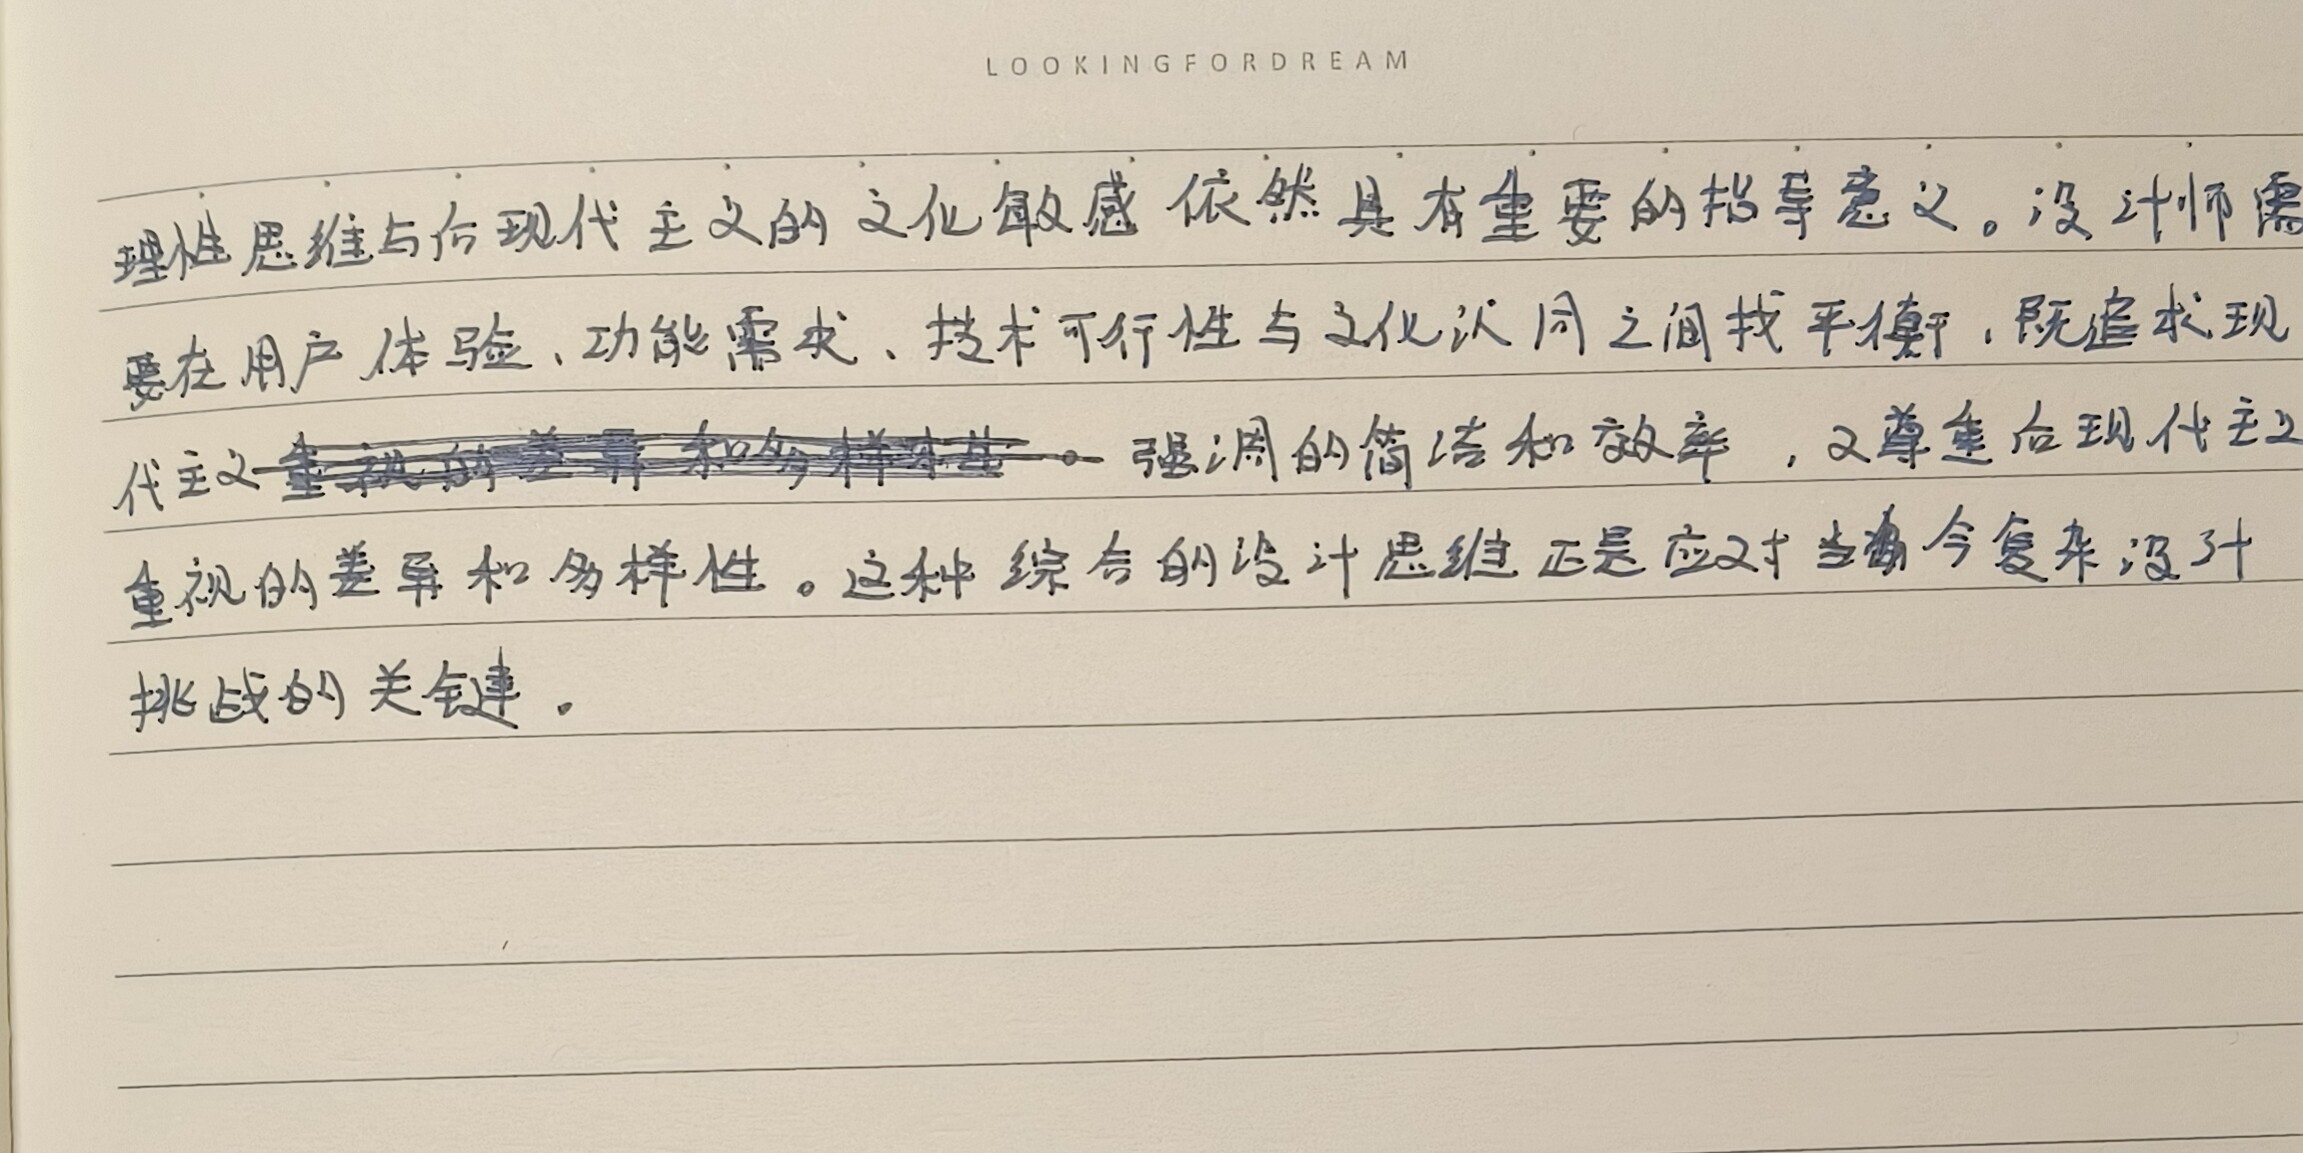 LOOKINGFORDREAM
理性思维与后现代主义的文化敏感依然具有重要的指导意义。设计师需
要在用户体验、功能需求、技术可行性与文化认同之间找平衡，既追求现
代主义重视的差异和多样性。强调的简洁和效率，又尊重后现代主义
重视的差异和多样性。这种综合的设计思维正是应对当今复杂设计
挑战的关键。